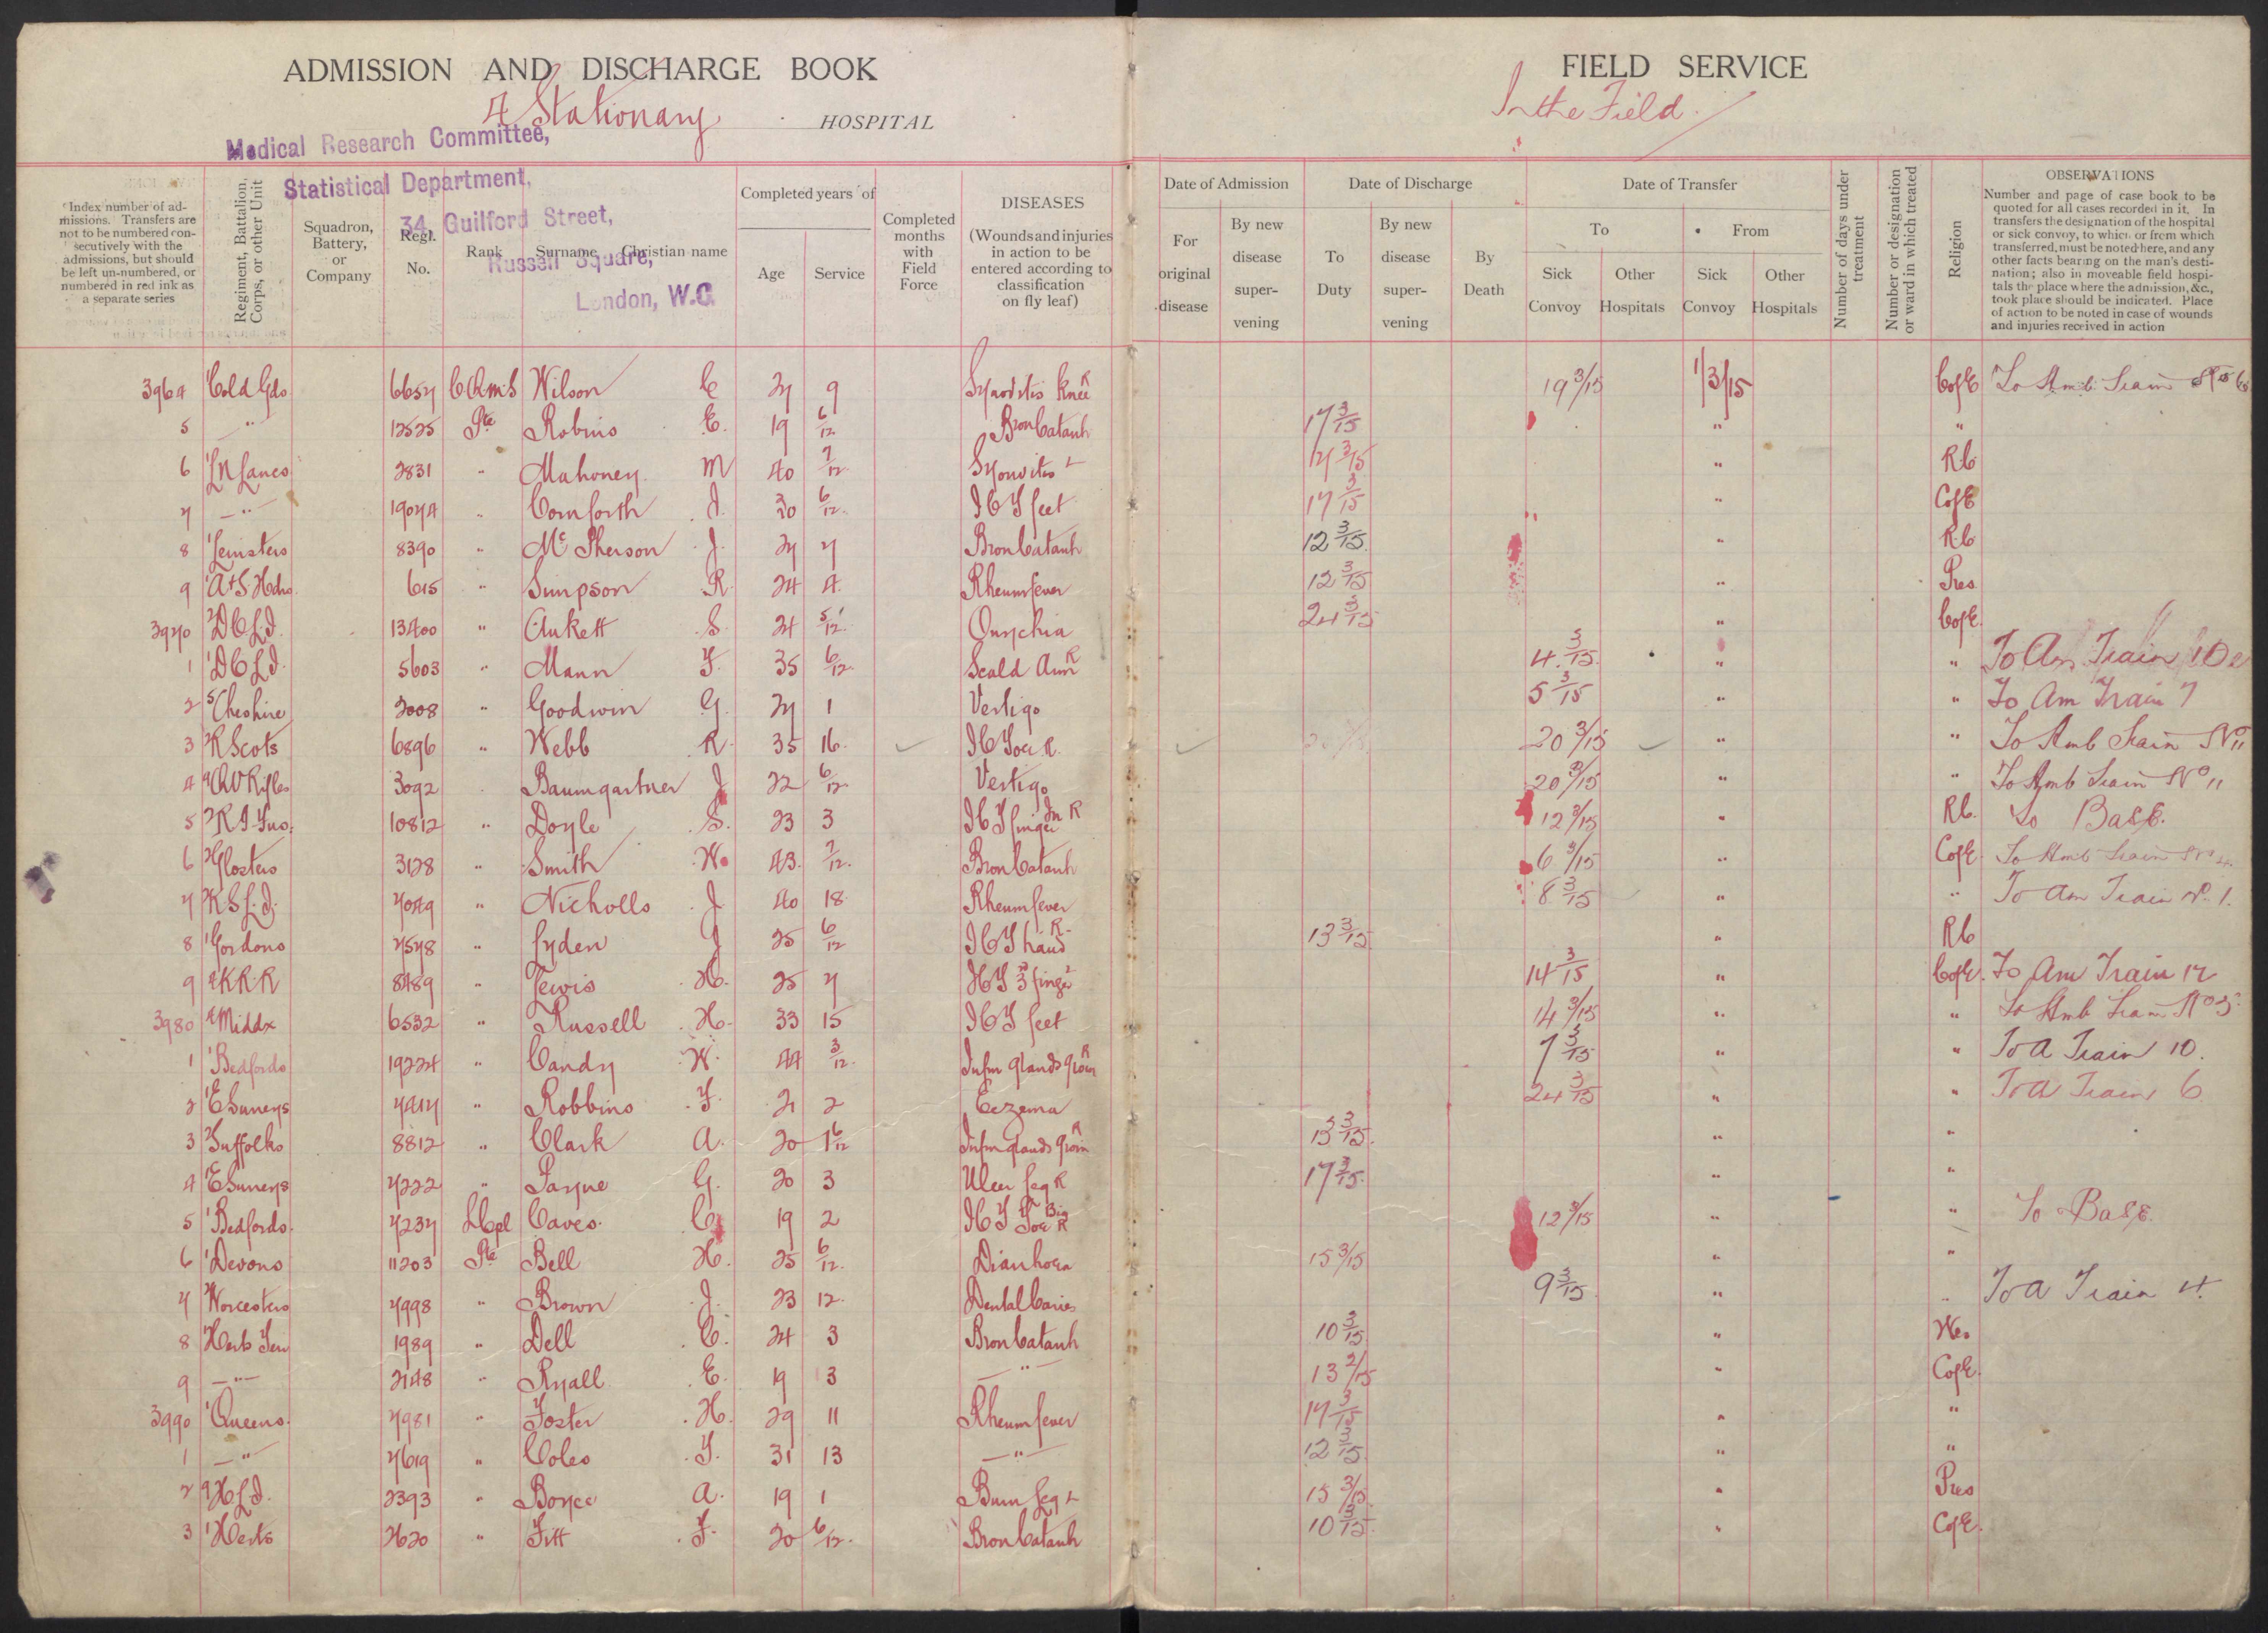 ADMISSION AND DISCHARGE BOOK
4 Stationary HOSPITAL
Medical Research Committee,
Statistical Department,
34, Guilford Street,
Russell Square,
London, W.C.
FIELD SERVICE
In the Field.
Index number of admissions. Transfers are not to be numbered consecutively with the admissions, but should be left un-numbered, or numbered in red ink as a separate series
Regiment, Battalion, Corps, or other Unit
Squadron, Battery, or Company
Regl. No.
Rank
Surname
Christian name
Completed years of
Age
Service
Completed months with Field Force
DISEASES
(Wounds and injuries in action to be entered according to classification on fly leaf)
Date of Admission
For original disease
By new disease supervening
Date of Discharge
To Duty
By new disease supervening
By Death
Date of Transfer
To
Sick Convoy
Other Hospitals
From
Sick Convoy
Other Hospitals
Number of days under treatment
Number or designation or ward in which treated
Religion
OBSERVATIONS
Number and page of case book to be quoted for all cases recorded in it. In transfers the designation of the hospital or sick convoy, to which or from which transferred, must be noted here, and any other facts bearing on the man's destination; also in moveable field hospitals the place where the admission, &c., took place should be indicated. Place of action to be noted in case of wounds and injuries received in action
3964 1 Cold Gds 6657 CQMS Wilson C 27 9 Synovitis Knee R 19 3/15 1/3/15 CofE To Amb Train No 6
5 " 12525 Pte Robins E. 19 6/12 Bron Catarrh 17 3/15 " "
6 1 LN Lancs 2831 " Mahoney M 40 7/12 Synovitis L 17 3/15 " RC
7 " 19074 " Cornforth J. 30 6/12 ICT feet 17 3/15 " CofE
8 Leinsters 8390 " McPherson J. 27 7 Bron Catarrh 12 3/15 " RC
9 A+S. Hdrs 615 " Simpson R. 24 4 Rheum fever 12 3/15 " Pres
3970 2 DCLI 13400 " Aukett S. 21 5/12 Onychia 24 3/15 " CofE
1 1 DCLI 5603 " Mann F. 35 6/12 Scald Arm R 4. 3/15 " " To Am Train 10
2 5 Cheshire 2008 " Goodwin G. 27 1 Vertigo 5 3/15 " " To Am Train 7
3 2 R Scots 6896 " Webb R. 35 16 ICT Toe R. 20 3/15 " " To Amb Train No 11
4 9 QV Rifles 3092 Baumgartner J 22 6/12 Vertigo 20 3/15 " " To Amb Train No 11
5 2 R I Fus. 10812 " Doyle S. 23 3 ICT finger R 12 3/15 " RC. To Base.
6 2 Glosters 3128 " Smith W. 43 7/12 Bron Catarrh 6 3/15 " CofE To Amb Train No 4
7 2 KSLI 7049 " Nicholls J 40 18 Rheum fever 8 3/15 " " To Am Train No. 1.
8 1 Gordons 7578 " Lyden J 25 6/12 ICT hand R. 13 3/15 " RC
9 4 KRR 8489 " Lewis H. 25 7 ICT 3rd finger L 14 3/15 " CofE. To Am Train 12
3980 4 Middx 6532 " Russell H. 33 15 ICT feet 14 3/15 " " To Amb Train No 5
1 1 Bedfords 19224 " Candy W. 44 3/12 Infm glands groin R 7 3/15 " " To A Train 10.
2 1 E Surreys 7417 " Robbins F. 21 2 Eczema 24 3/15 " " To A Train 6
3 2 Suffolks 8812 " Clark A. 20 1 6/12 Infm glands groin R 13 3/15 " "
4 1 E Surreys 7222 " Payne G. 20 3 Ulcer leg R 17 3/15 " "
5 1 Bedfords 7237 LCpl Caves. C 19 2 ICT Big Toe R 12 3/15 " " To Base.
6 1 Devons 11203 Pte Bell H. 25 6/12 Diarrhoea 15 3/15 " "
7 Worcesters 7998 " Brown J. 23 12 Dental Caries 9 3/15 " " To A Train 4.
8 Herts Terr 1989 " Dell C. 24 3 Bron Catarrh 10 3/15 " Wes
9 " 2148 " Ryall E. 19 3 " 13 2/15 " CofE.
3990 1 Queens. 7981 " Foster H. 29 11 Rheum fever 17 3/15 " "
1 " 7619 " Coles F. 31 13 " 12 3/15 " "
2 9 HLI. 2393 " Boyce A. 19 1 Burn leg L 15 3/15 " Pres
3 1 Herts 2620 " Fitt F. 20 6/12 Bron Catarrh 10 3/15 " CofE.